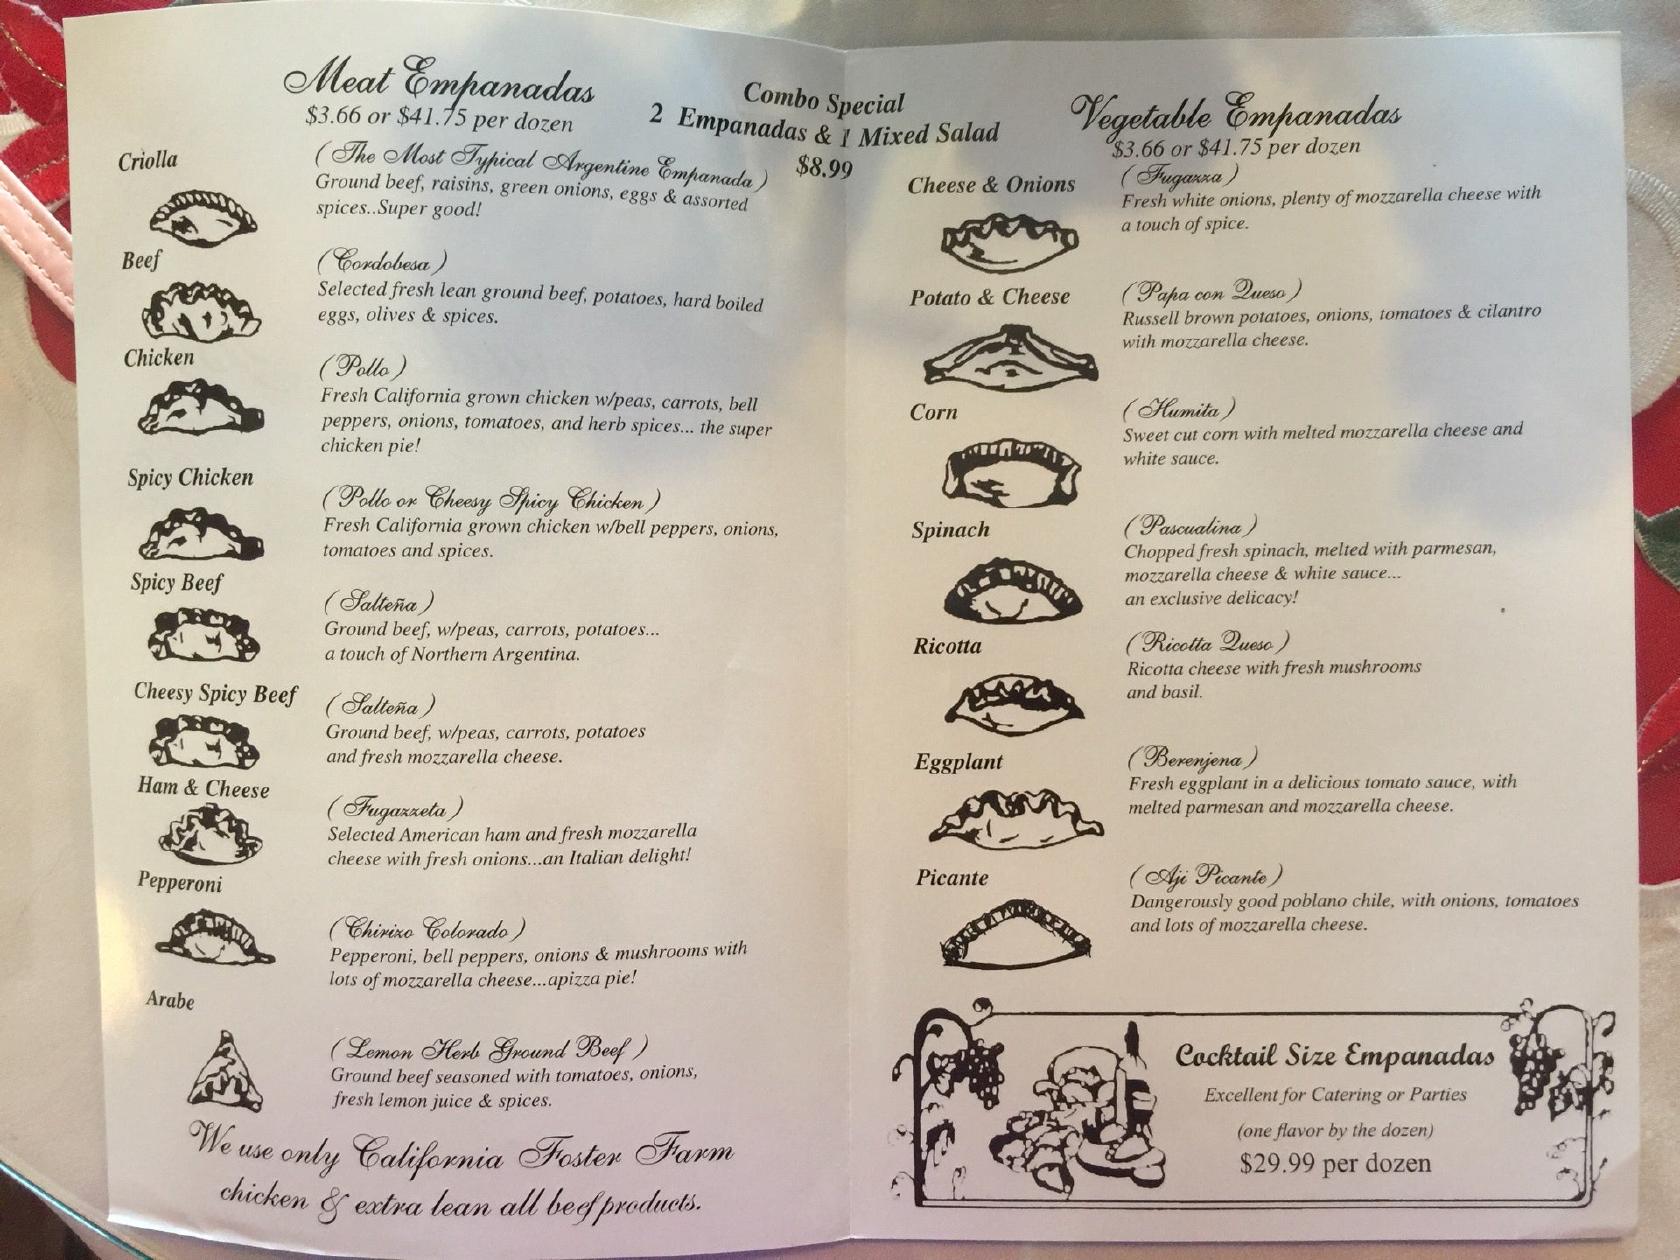 Meat Empanadas
$3.66 or $41.75 per dozen
Combo Special
2 Empanadas & 1 Mixed Salad
$8.99
Criolla
( The Most Typical Argentine Empanada )
Ground beef, raisins, green onions, eggs & assorted
spices..Super good!
Beef
( Cordobesa )
Selected fresh lean ground beef, potatoes, hard boiled
eggs, olives & spices.
Chicken
( Pollo )
Fresh California grown chicken w/peas, carrots, bell
peppers, onions, tomatoes, and herb spices... the super
chicken pie!
Spicy Chicken
( Pollo or Cheesy Spicy Chicken )
Fresh California grown chicken w/bell peppers, onions,
tomatoes and spices.
Spicy Beef
( Salteña )
Ground beef, w/peas, carrots, potatoes...
a touch of Northern Argentina.
Cheesy Spicy Beef
( Salteña )
Ground beef, w/peas, carrots, potatoes
and fresh mozzarella cheese.
Ham & Cheese
( Fugazzeta )
Selected American ham and fresh mozzarella
cheese with fresh onions...an Italian delight!
Pepperoni
( Chirizo Colorado )
Pepperoni, bell peppers, onions & mushrooms with
lots of mozzarella cheese...apizza pie!
Arabe
( Lemon Herb Ground Beef )
Ground beef seasoned with tomatoes, onions,
fresh lemon juice & spices.
We use only California Foster Farm
chicken & extra lean all beef products.
Vegetable Empanadas
$3.66 or $41.75 per dozen
Cheese & Onions
( Fugazza )
Fresh white onions, plenty of mozzarella cheese with
a touch of spice.
Potato & Cheese
( Papa con Queso )
Russell brown potatoes, onions, tomatoes & cilantro
with mozzarella cheese.
Corn
( Humita )
Sweet cut corn with melted mozzarella cheese and
white sauce.
Spinach
( Pascualina )
Chopped fresh spinach, melted with parmesan,
mozzarella cheese & white sauce...
an exclusive delicacy!
Ricotta
( Ricotta Queso )
Ricotta cheese with fresh mushrooms
and basil.
Eggplant
( Berenjena )
Fresh eggplant in a delicious tomato sauce, with
melted parmesan and mozzarella cheese.
Picante
( Aji Picante )
Dangerously good poblano chile, with onions, tomatoes
and lots of mozzarella cheese.
Cocktail Size Empanadas
Excellent for Catering or Parties
(one flavor by the dozen)
$29.99 per dozen